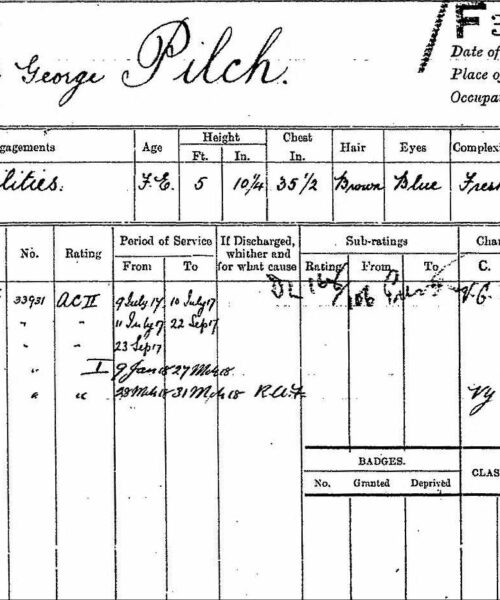 F 3
George Pilch.
Date of
Place of
Occupat
gagements
Age
Height
Ft.
In.
Chest
In.
Hair
Eyes
Complexi
lities.
F.E.
5
10¼
35½
Brown
Blue
Fresh
No.
Rating
Period of Service
From
To
If Discharged,
whither and
for what cause
Sub-ratings
Rating
From
To
Char
C.
33931
AC II
9 July 17
10 July 17
V.G.
" " 11 July 17 22 Sep 17
" " 23 Sep 17
" I 9 Jan 18 27 Mch 18
" " 28 Mch 18 31 Mch 18 R.A.F.
BADGES.
No.
Granted
Deprived
CLAS